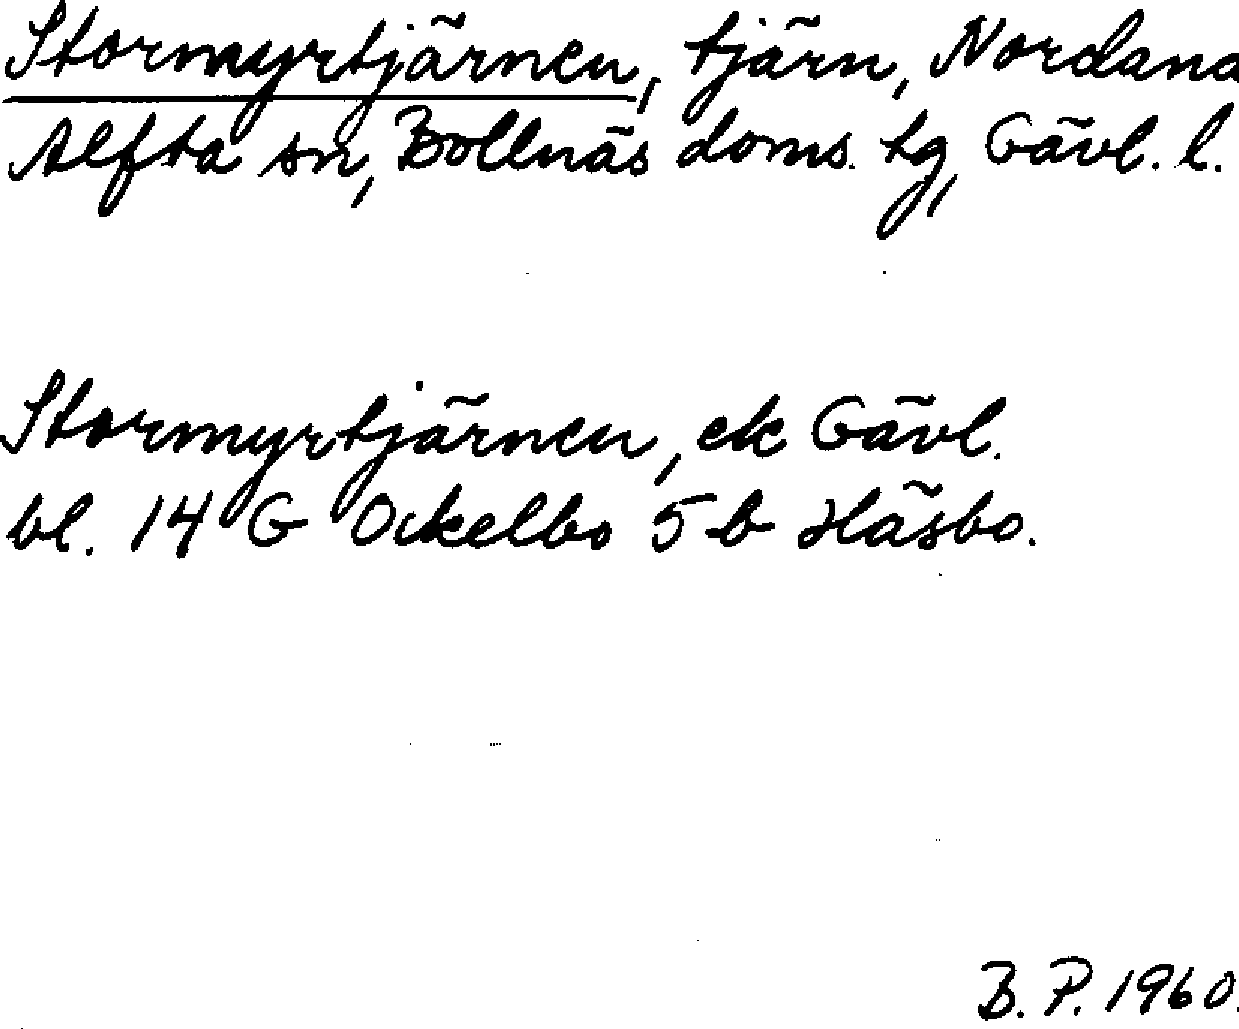 Stormyrtjärnen, tjärn, Nordana
Alfta sn, Bollnäs doms. tg, Gävl. l.
Stormyrtjärnen, ek Gävl.
bl. 14 G Ockelbo 5 b Häsbo.
B. P. 1960.